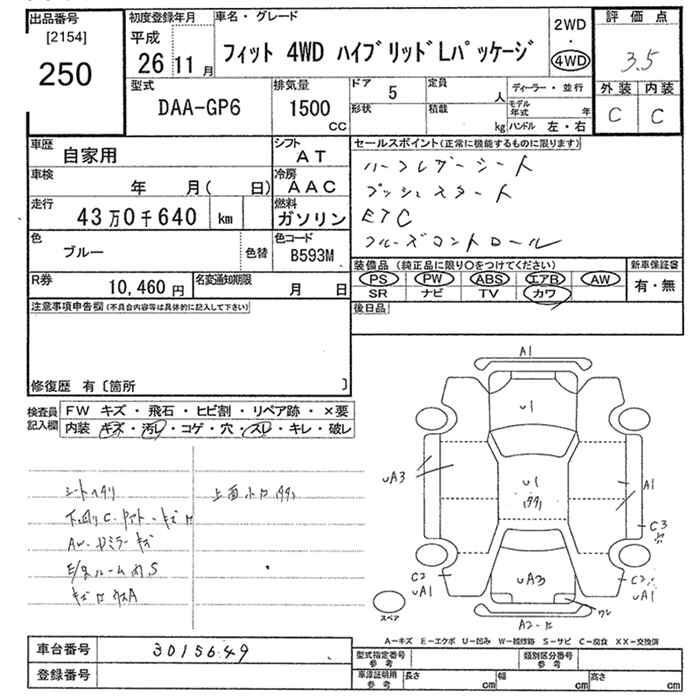 出品番号
[2154]
250
初度登録年月
平成
26 11月
車名・グレード
フィット 4WD ハイブリッドLパッケージ
2WD
・
4WD
評価点
3.5
外装 内装
C C
型式
DAA-GP6
排気量
1500
CC
ドア 5
定員 人
形状
積載 kg
ディーラー・並行
モデル年式 年
ハンドル 左・右
車歴 自家用
シフト AT
車検 年 月( 日)
冷房 AAC
走行 43万0千640 km
燃料 ガソリン
色 ブルー 色替
色コード B593M
R券 10,460円
名変通知期限 月 日
セールスポイント(正常に機能するものに限ります)
ハーフレザーシート
プッシュスタート
ETC
クルーズコントロール
装備品(純正品に限り○をつけてください)
PS PW ABS エアB AW
SR ナビ TV カワ
新車保証書
有・無
後日品
注意事項申告欄(不具合内容等は具体的に記入して下さい)
修復歴 有〔箇所 〕
検査員記入欄
FW キズ・飛石・ヒビ割・リペア跡・×要
内装 キズ・汚レ・コゲ・穴・スレ・キレ・破レ
シートヘタリ
A1
U1
U1
UA3
A1
C3
C2
UA1
UA3
C2
UA1
ワレ
スペア
A-キズ E-エクボ U-凹み W-補修跡 S-サビ C-腐食 XX-交換済
車台番号 3015649
登録番号
型式指定番号 参考
類別区分番号 参考
車庫証明用 参考
長さ cm
幅 cm
高さ cm